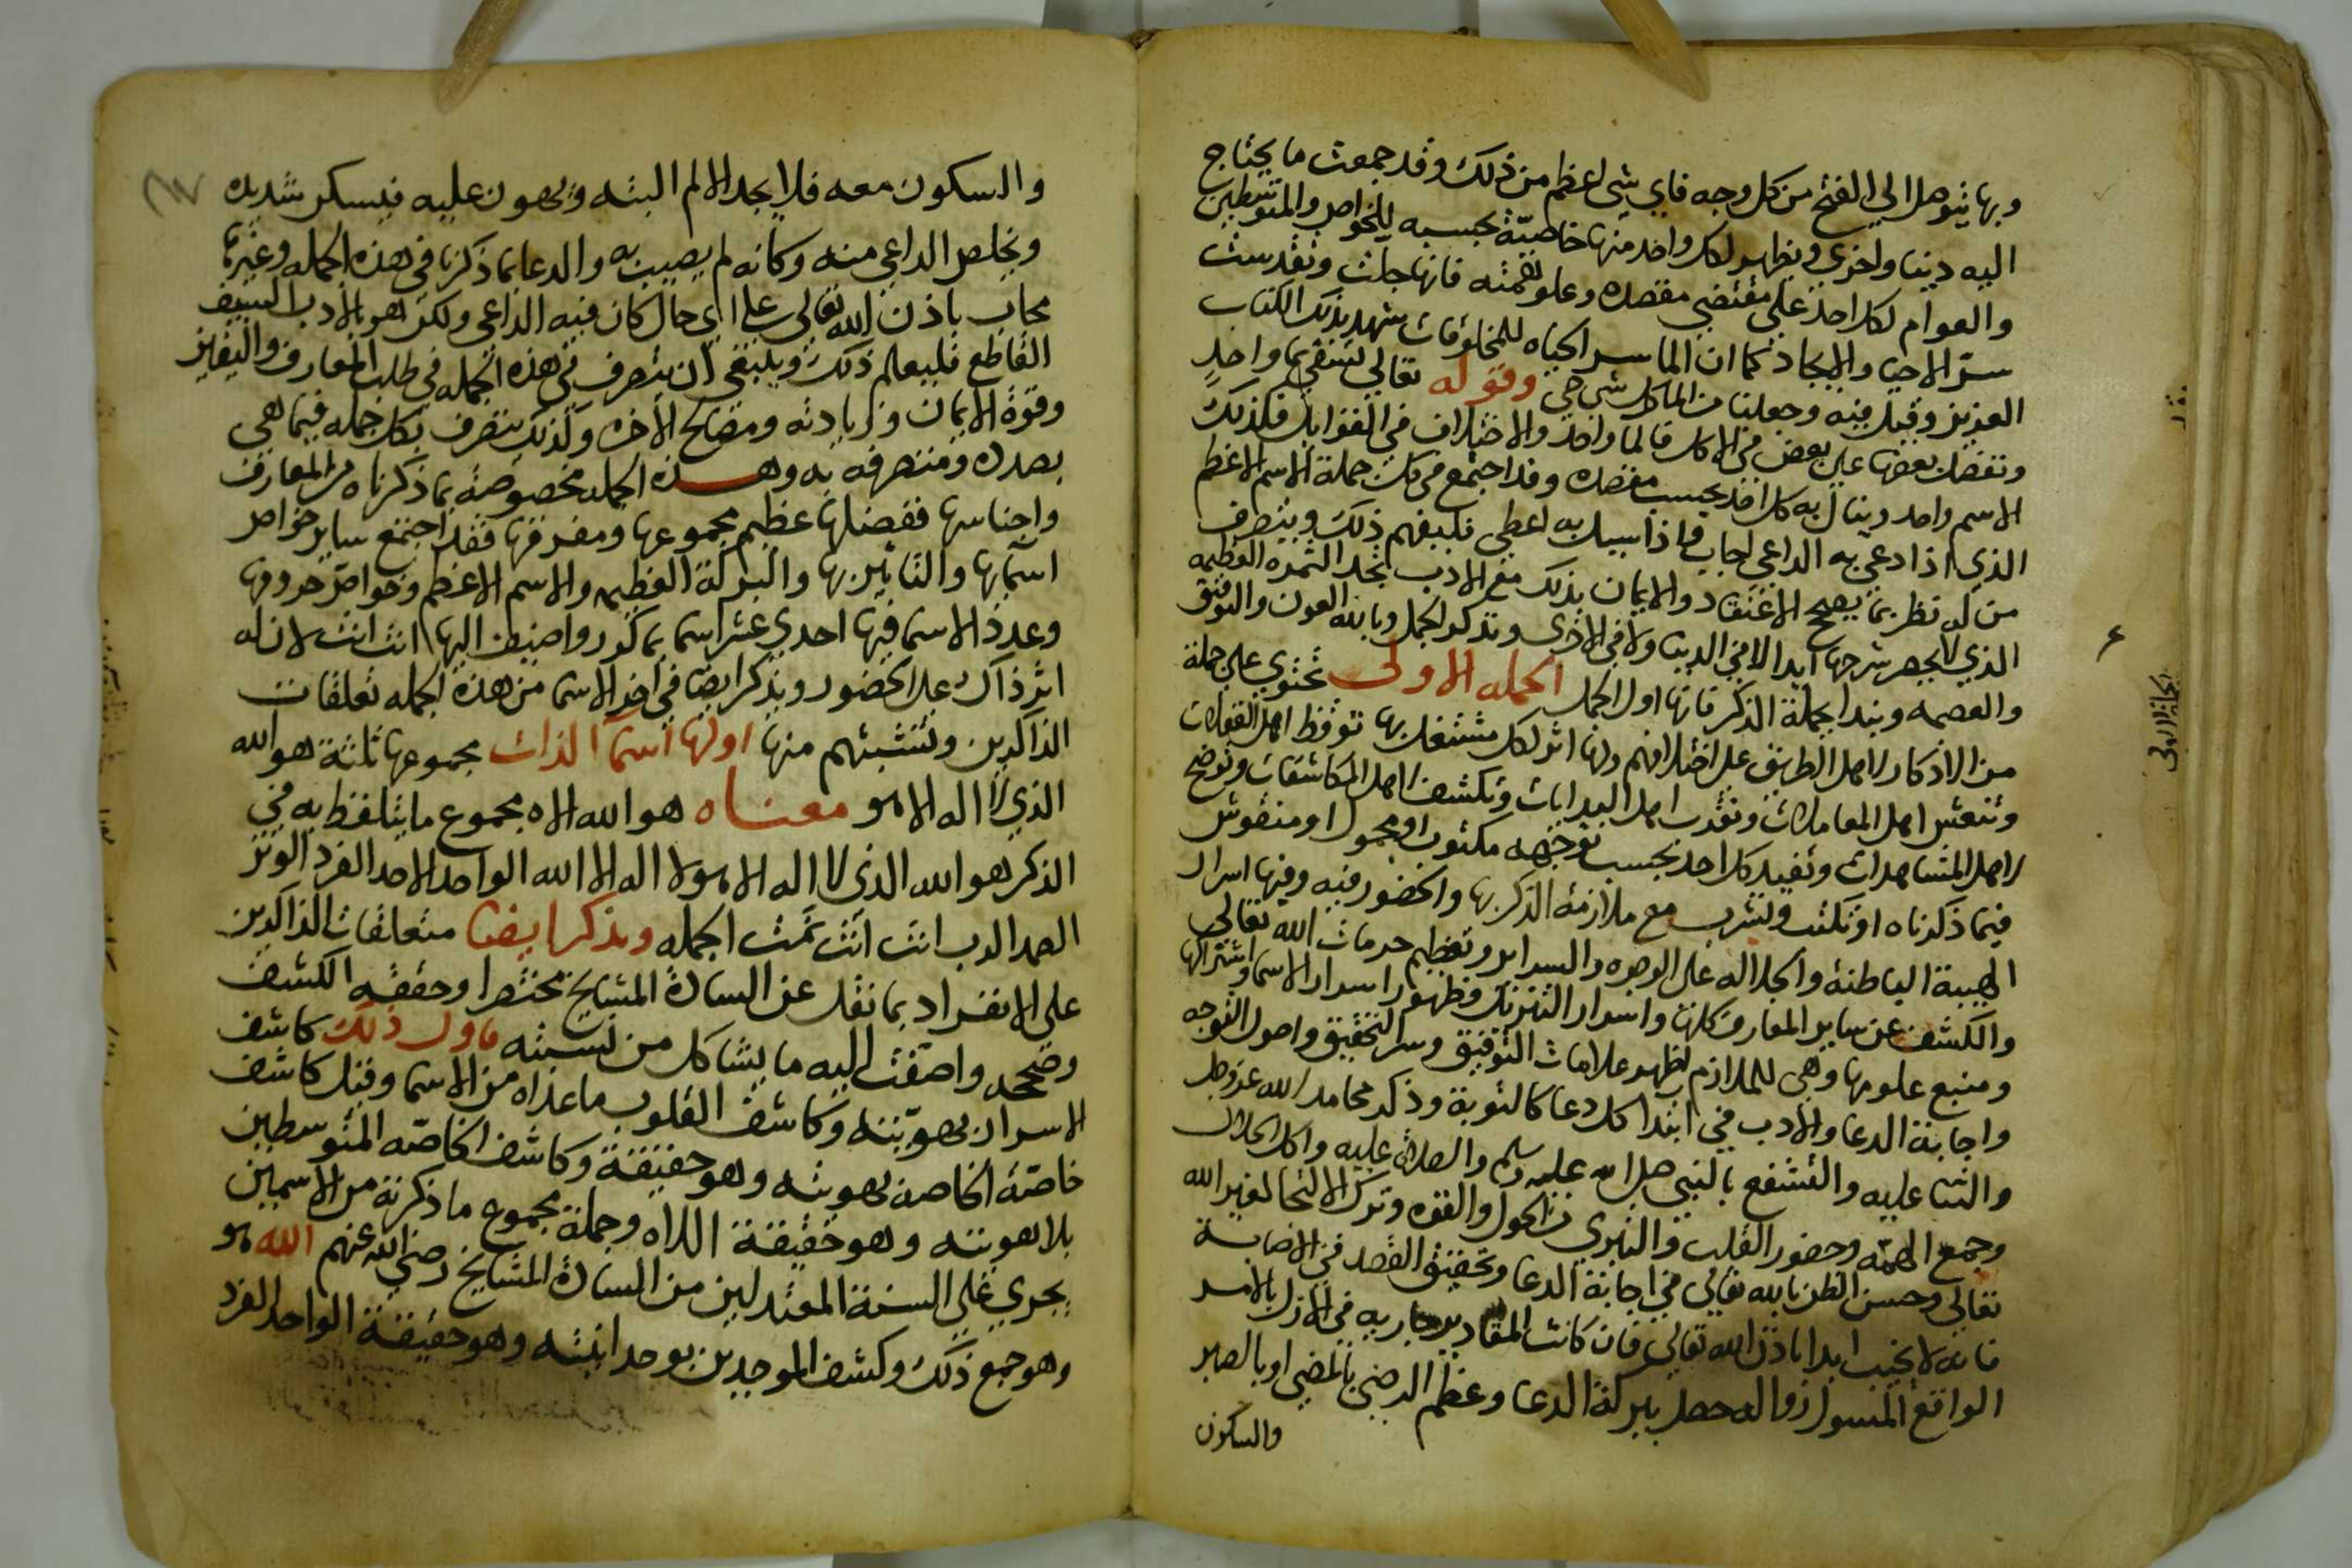 وبها يتوصل الي الفتح من كل وجه فاي شي اعظم من ذلك وقد جمعت ما يحتاج
اليه دينا واخري ويظهر لكل واحد منها خاصيّة بحسبه للخواص والمتوسطين
والعوام لكل احد علي مقتضي مقصده وعلو همته فانها جلت وتقدست
سر الاحيا والايجاد كما ان الما سر الحياه للمخلوقات شهد بذلك الكتاب
العزيز وقيل فيه وجعلنا من الما كل شي حي وقوله تعالي تسقي بما واحد
ونفضل بعضها علي بعض في الاكل فالما واحد والاختلاف في القوابل فكذلك
الاسم واحد وينال به كل احد بحسب مقصده وقد اجتمع في تلك جملة الاسم الاعظم
الذي اذا دعي به الداعي اجاب واذا سيل به اعطي فليفهم ذلك ويتصرف
من له نظر بما يصح الاعتقاد والايمان بذلك مع الادب تجد الثمره العظيمه
الذي لا يحصر شرحها ابدا لا في الدنيا ولا في الاخرى ونذكر الجمل وبالله العون والتوفيق
والعصمه ونبدا بجملة الذكر فانها اول الجمل الجمله الاولى تحتوي علي جملة
من الاذكار لاهل الطريق علي اختلافهم ولها اثر لكل مشتغل بها توقظ اهل الغفلات
وتنعش اهل المعاملات وتقرب اهل البدايات وتكشف لاهل المكاشفات وتوضح
لاهل المشاهدات وتفيد كل احد بحسب توجهه مكتوب او محمول او منقوش
فيما ذكرناه او تكتب وتشرب مع ملازمة الذكر بها والحضور فيه وفيها اسرار
الهيبة الباطنة والجلاله علي الوجوه والسراير وتعظيم حرمات الله تعالى
والكشف عن ساير المعارف كلها واسرار التنزلات وظهور اسرار الاسما واشتراكها
ومنبع علومها وهي للملازم تظهر علامات التوفيق وسر التحقيق واصول التوجه
واجابة الدعا والادب في ابتدا كل دعا كالتوبة وذكر محامد الله عز وجل
والثنا عليه والتشفع بالنبي صلى الله عليه وسلم والصلاة عليه واكل الحلال
وجمع الهمّه وحضور القلب والتبري من الحول والقوه وترك الالتجا لغير الله
تعالي وحسن الظن بالله تعالي في اجابة الدعا وتحقيق القصد في الاصابة
فانه لا يخيب ابدا باذن الله تعالي فان كانت المقادير جاريه في الازل بالامر
الواقع المسول زواله حصل ببركة الدعا وعظم الرضي بالمضي او بالصبر
والسكون
الجملة الاولى
والسكون معه فلا يجد الالم البته ويهون عليه فيسكر شديده
ويخلص الداعي منه وكانه لم يصيب به والدعا بما ذكرنا في هذه الجمله وغيرها
مجاب باذن الله تعالى علي اي حال كان فيه الداعي ولكن هو بالادب السيف
القاطع فليعلم ذلك وينبغي ان يتصرف في هذه الجمله في طلب المعارف واليقين
وقوة الايمان وزيادته ومصالح الاخره وكذلك يتصرف بكل جمله فيما هي
بصدده ومتصرفه به وهذه الجمله مخصوصة بما ذكرناه من المعارف
واجناسها ففضلها عظيم مجموعها ومفرقها فقد اجتمع ساير خواص
اسمآيها والتاثير بها والبركة العظيمه والاسم الاعظم وخواص حروفها
وعدد الاسما فيها احدي عشر اسما بمكرر واضيف اليها انت انت لان له
اثر ذاك علي الحضور ونذكر ايضا في اخر الاسما من هذه الجمله تعلقات
الذاكرين ونسبتهم منها اولها اسما الذات مجموعها ثلثة هو الله
الذي لا اله الا هو معناه هو الله الاه مجموع ما يتلفظ به في
الذكر هو الله الذي لا اله الا هو لا اله الا الله الواحد الاحد الفرد الوتر
الصمد الرب انت انت تمت الجمله ونذكر ايضا متعلقات الذاكرين
على الانفراد بما نقل عن السادة المشايخ مختصرا وحققه الكشف
وصححه واضفت اليه ما يشاكل من نسبته فاول ذلك كاشف
الاسرار بهويّته وكاشف القلوب ما عداه من الاسما وقيل كاشف
خاصّة الخاصة بهويته وهو حقيقة وكاشف الخاصّه المتوسطين
بلا هويته وهو حقيقة اللاه وجملة مجموع ما ذكرته من الاسمين
يجري علي السنة المعتدلين من السادة المشايخ رضي الله عنهم الله هو
وهو جمع ذلك وكشف الموحدين بوحدانيته وهو حقيقة الواحد الفرد